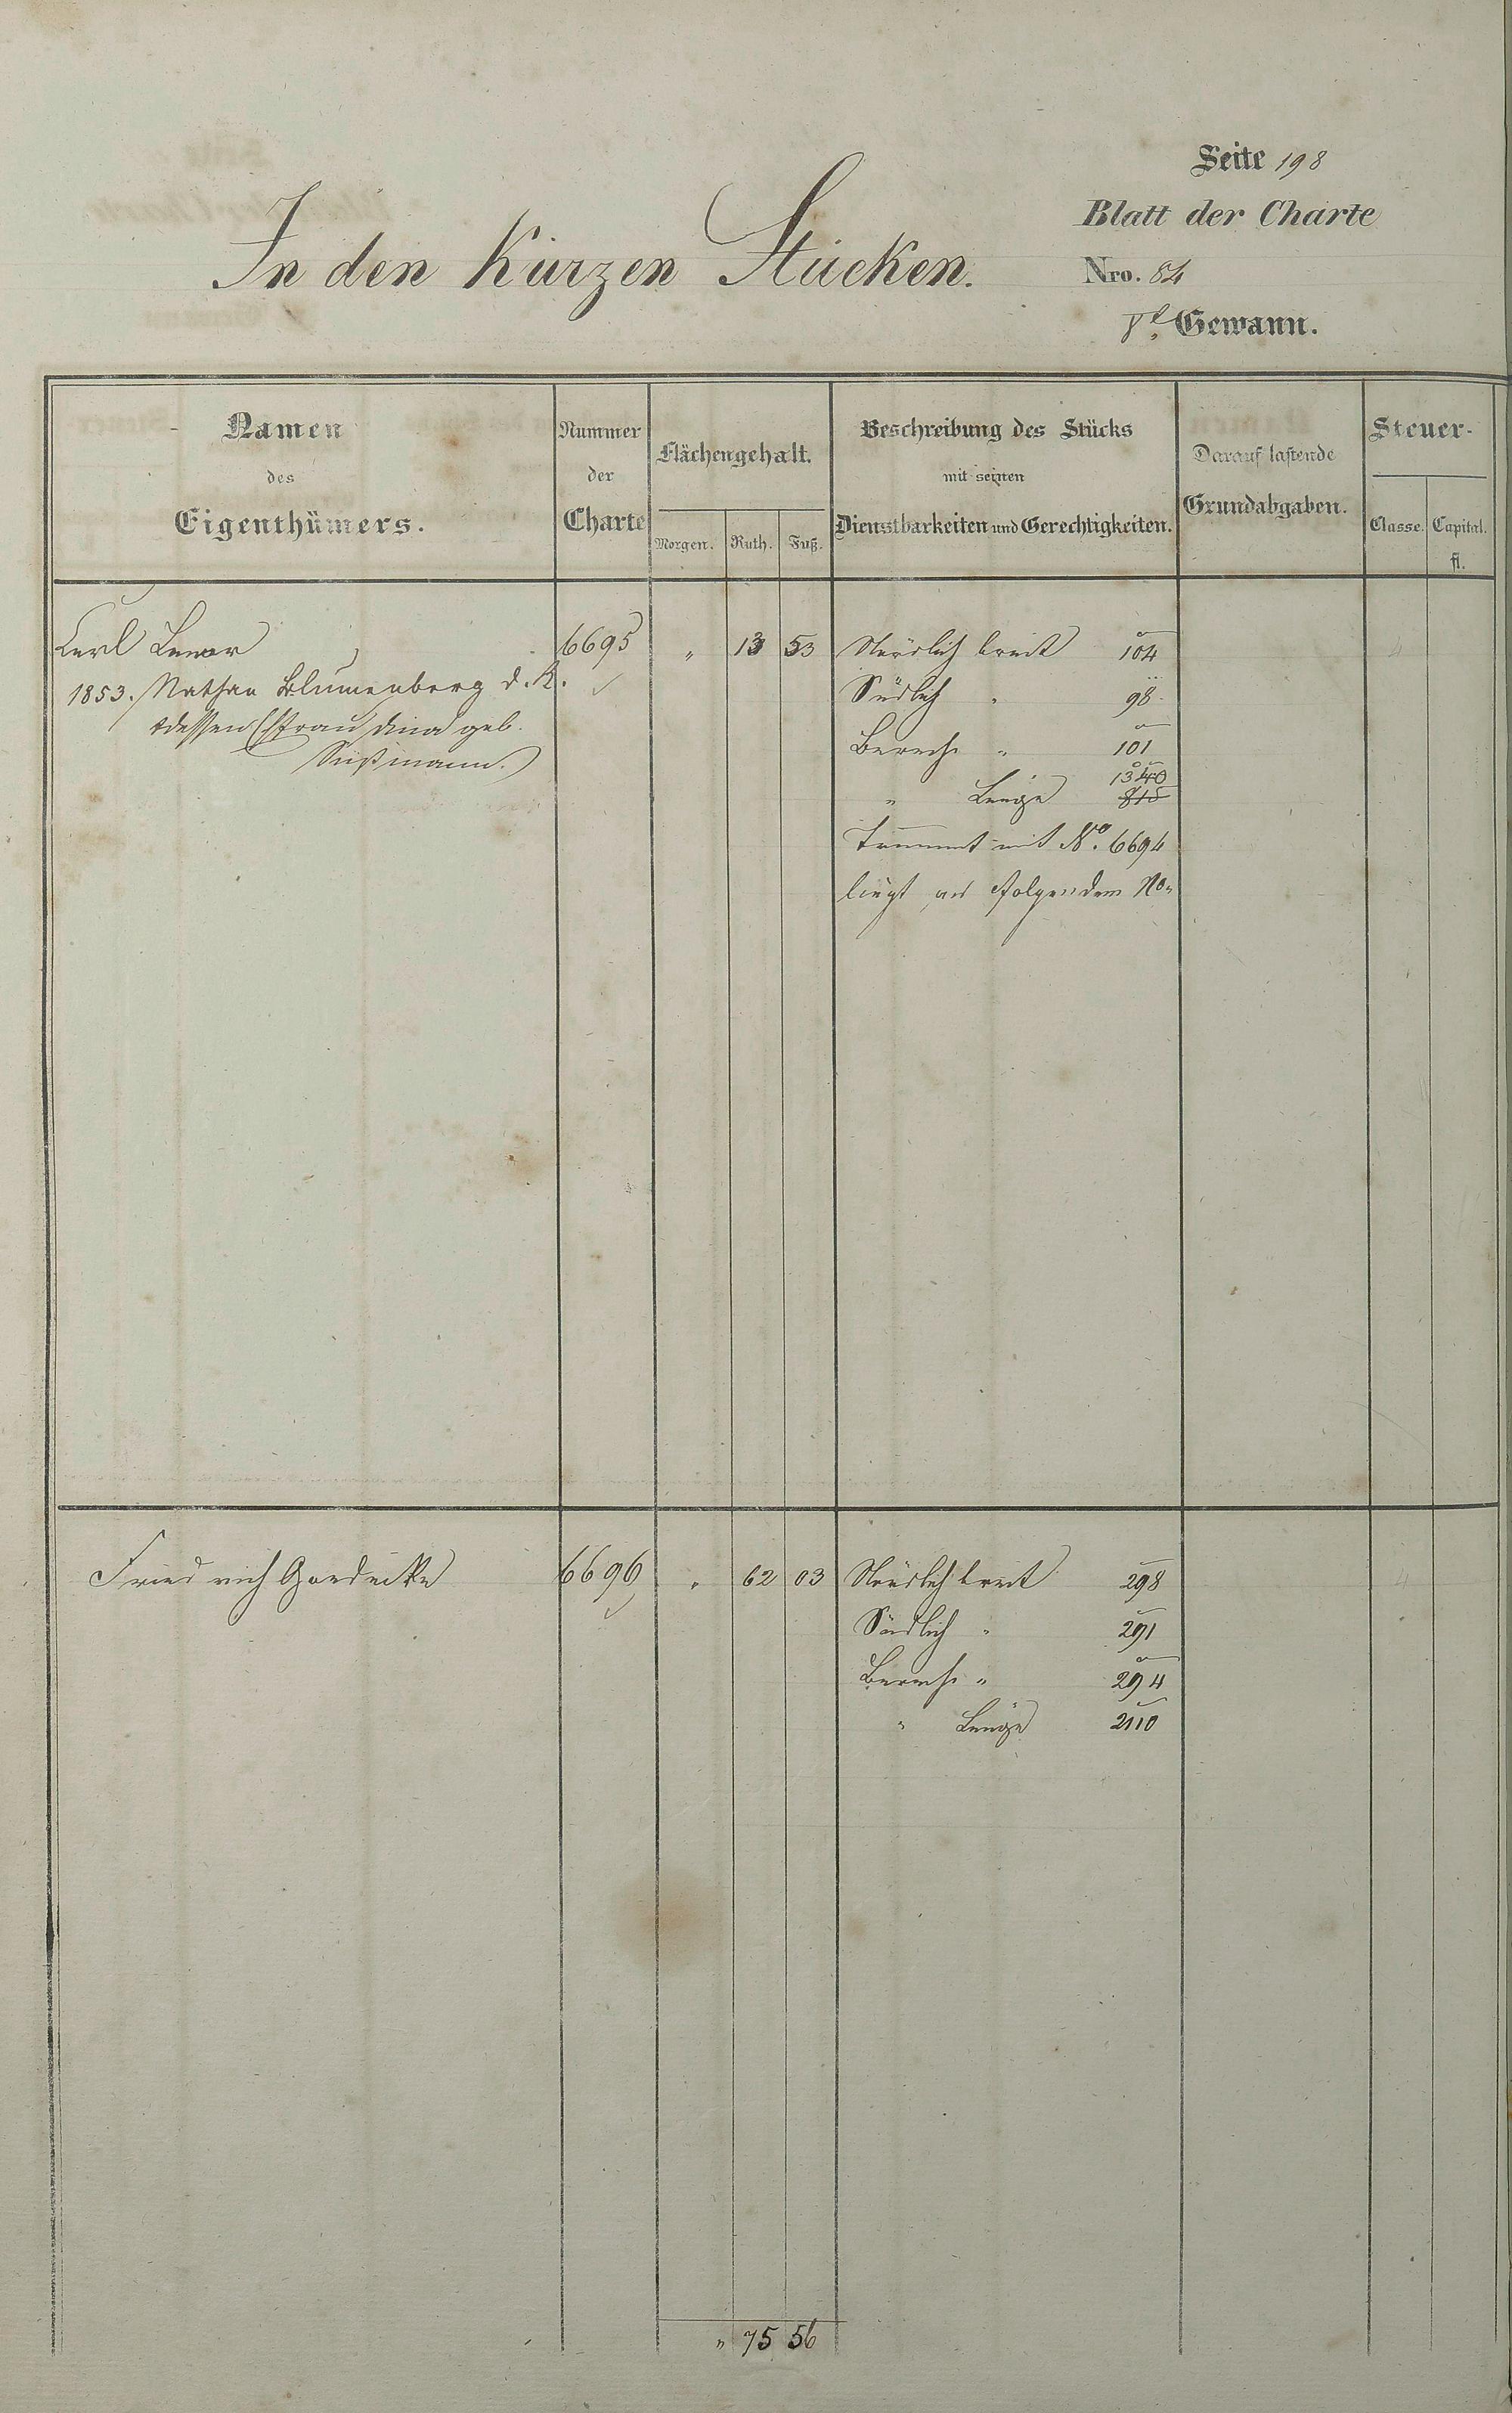 Seite 198
Blatt der Charte
In den Kurzen Stücken.
Nro. 84
Gewann.
Namen
des
Eigenthümers.
Nummer
der
Charte
Flächengehalt.
Morgen. Ruth. Fuß.
Beschreibung des Stücks
mit seinen
Dienstbarkeiten und Gerechtigkeiten.
Darauf lastende
Grundabgaben.
Steuer-
Classe. Capital.
fl.
Carl 6695 " 13 53 Nördlich breit 104
1853. Nathan Blumenberg d. K. Südlich " 98
dessen Ehfrau Dina geb. Berechn " 101
Süßmann. 1340
" Länge 815
Trennent mit No. 6694
liegt an folgendem No.
Friedrich Goedecke 6696 " 62 03 Nördlich breit 298 4
Südlich " 291
Berechn " 294
" Länge 2110
" 75 56